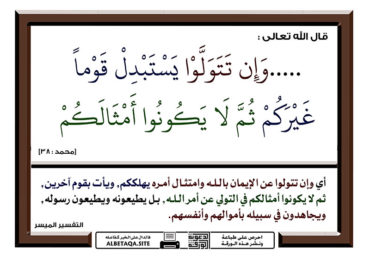 قال الله تعالى :
.....وَإِن تَتَوَلَّوْا يَسْتَبْدِلْ قَوْماً
غَيْرَكُمْ ثُمَّ لَا يَكُونُوا أَمْثَالَكُمْ
[محمد : ٣٨]
أي وإن تتولوا عن الإيمان بالله وامتثال أمره يهلككم, ويأت بقوم آخرين,
ثم لا يكونوا أمثالكم في التولي عن أمر الله, بل يطيعونه ويطيعون رسوله,
ويجاهدون في سبيله بأموالهم وأنفسهم.
التفسير الميسر
احرص على طباعة
ونشر هذه الورقة
فالدال على الخير كفاعله
ALBETAQA.SITE